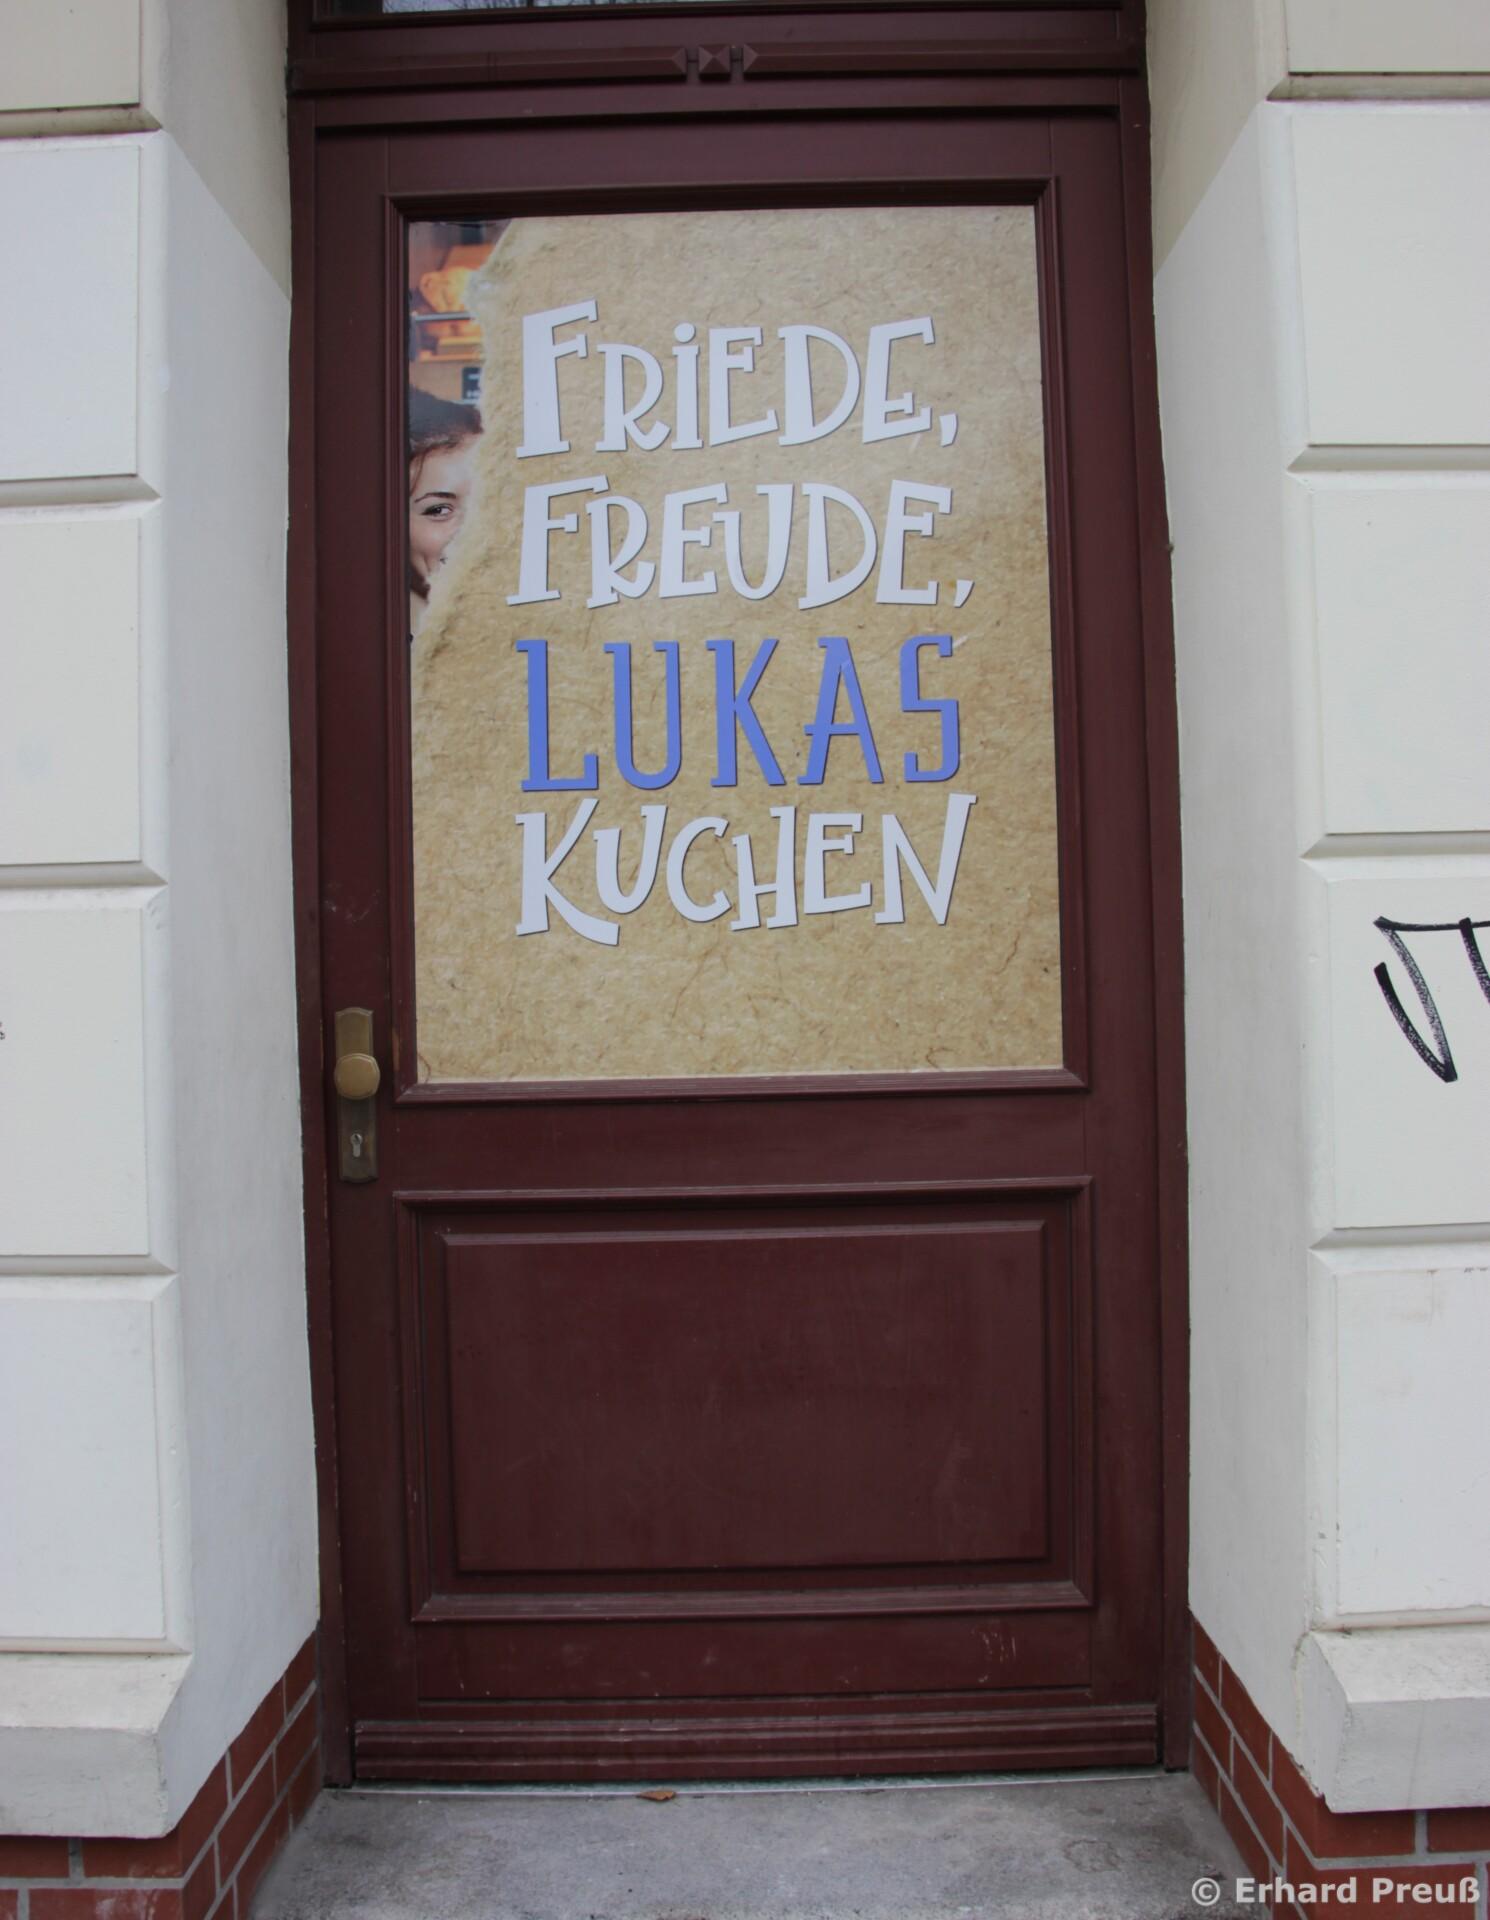 FRIEDE,
FREUDE,
LUKAS
KUCHEN
© Erhard Preuß